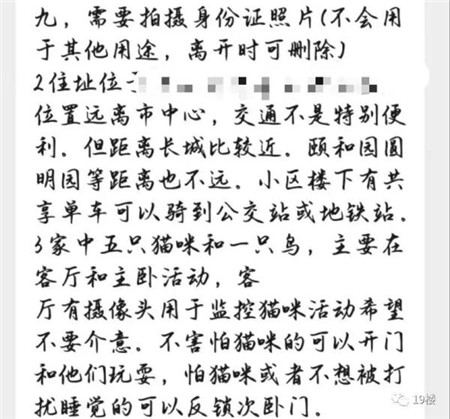 九，需要拍摄身份证照片(不会用
于其他用途，离开时可删除)
2住址位于
位置远离市中心，交通不是特别便
利．但距离长城比较近．颐和园圆
明园等距离也不远．小区楼下有共
享单车可以骑到公交站或地铁站．
3家中五只猫咪和一只鸟，主要在
客厅和主卧活动，客
厅有摄像头用于监控猫咪活动希望
不要介意．不害怕猫咪的可以开门
和他们玩耍，怕猫咪或者不想被打
扰睡觉的可以反锁次卧门．
19楼